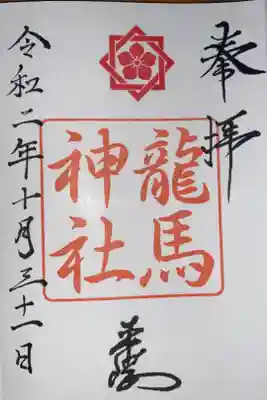 奉拝
龍馬
神社
令和二年十月三十一日